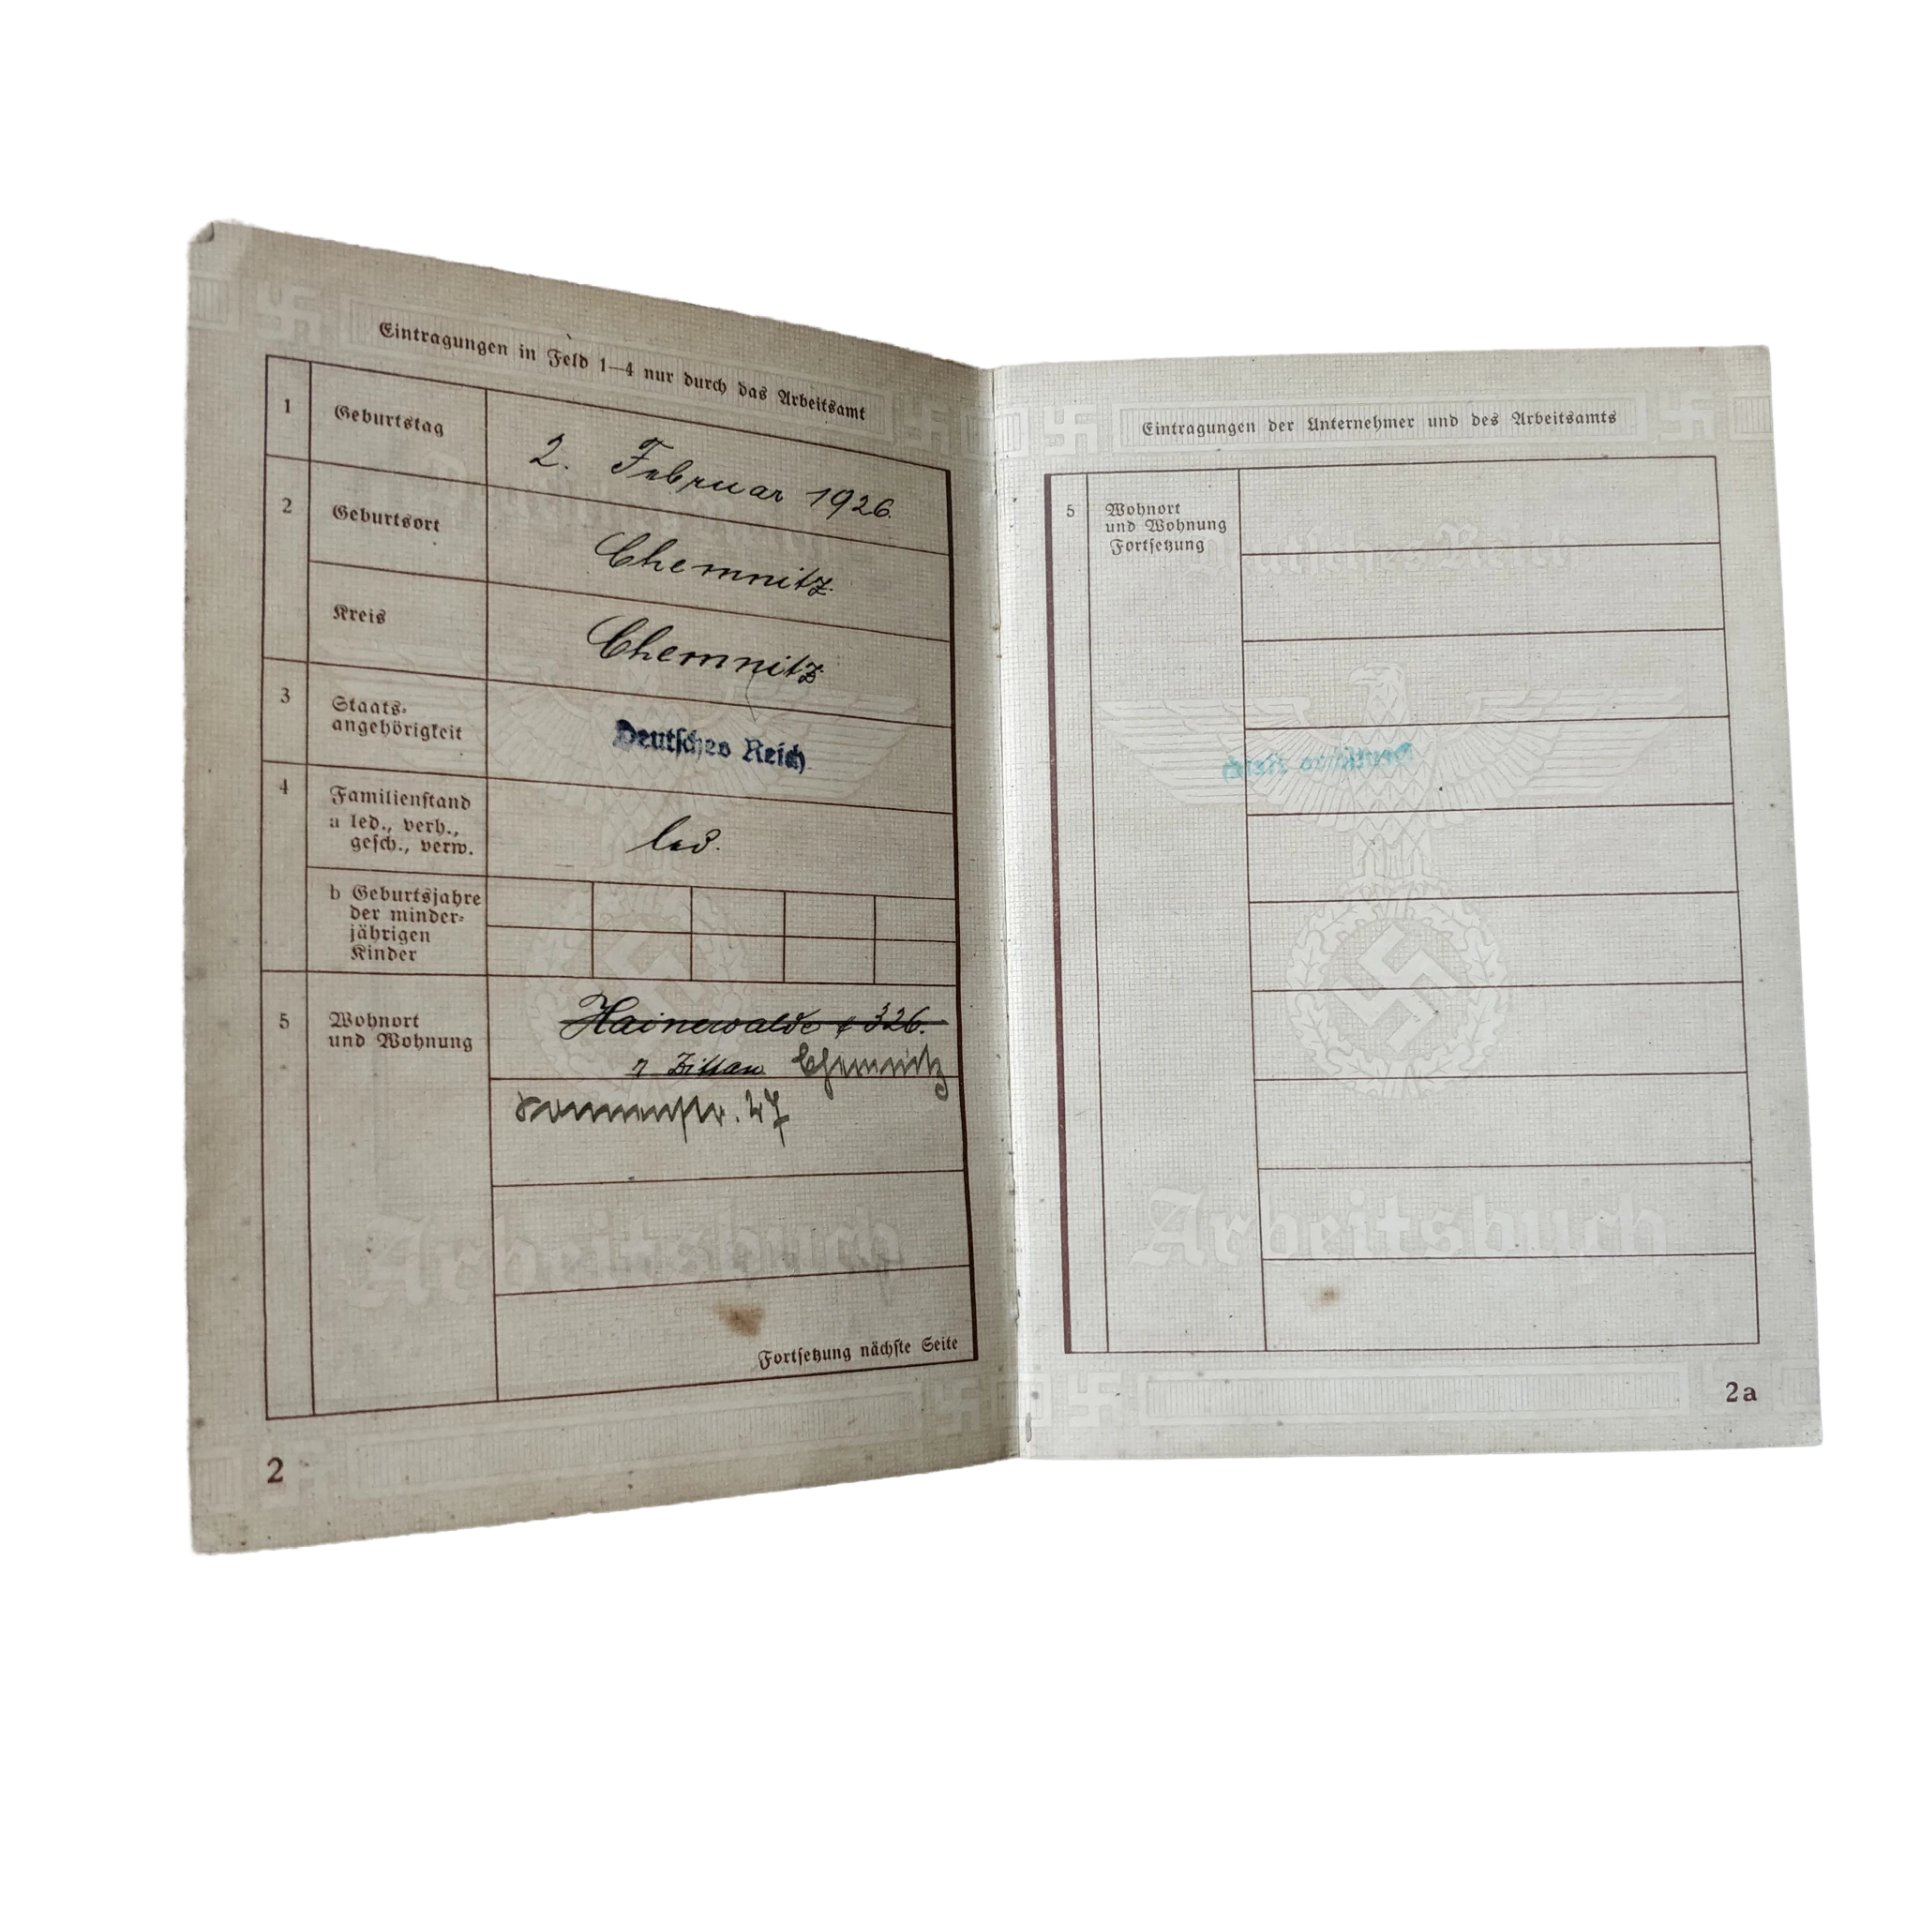 Eintragungen in Feld 1—4 nur durch das Arbeitsamt
1 Geburtstag 2. Februar 1926.
2 Geburtsort Chemnitz.
Kreis Chemnitz
3 Staats-
angehörigkeit Deutsches Reich
4 Familienstand
a led., verh.,
gesch., verw. led.
b Geburtsjahre
der minder-
jährigen
Kinder
5 Wohnort
und Wohnung
Hainewalde 326.
Zittau Chemnitz
Sonnenstr. 27
Fortsetzung nächste Seite
2
Eintragungen der Unternehmer und des Arbeitsamts
5 Wohnort
und Wohnung
Fortsetzung
Deutsches Reich
Deutsches Reich
Arbeitsbuch
Arbeitsbuch
2a